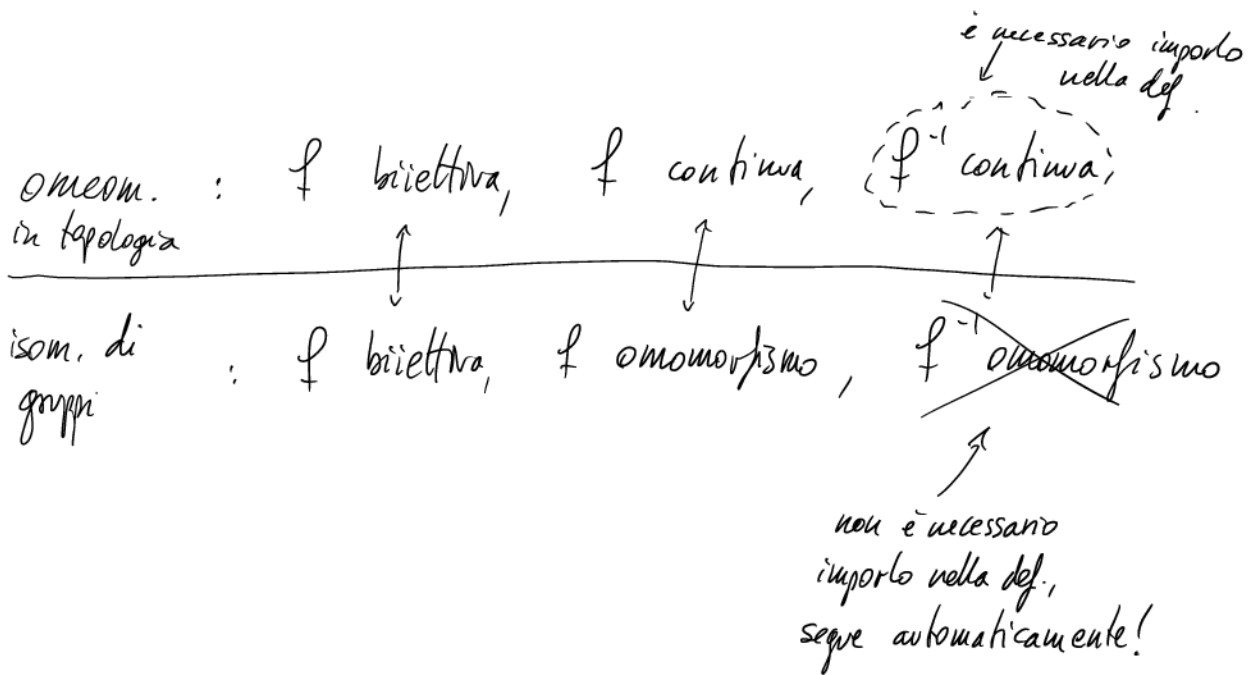 è necessario imporlo
nella def.
omeom. : f biiettiva, f continua, f⁻¹ continua;
in topologia
isom. di
gruppi : f biiettiva, f omomorfismo, f⁻¹ omomorfismo
non è necessario
imporlo nella def.,
segue automaticamente!